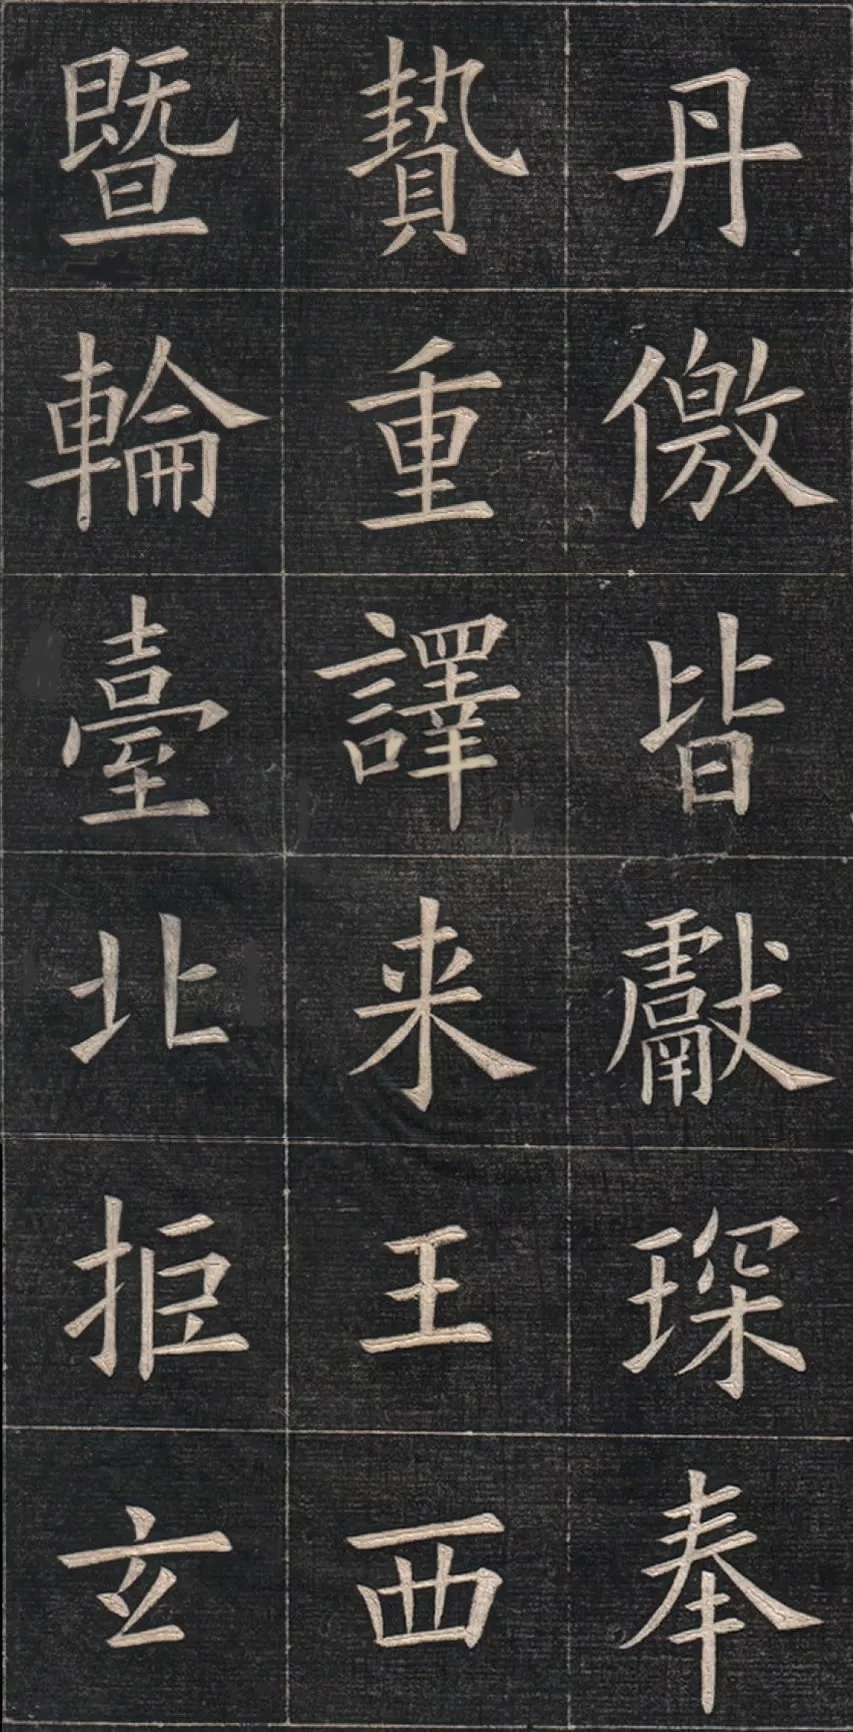 丹徼皆獻琛奉
贄重譯来王西
暨輪臺北拒玄